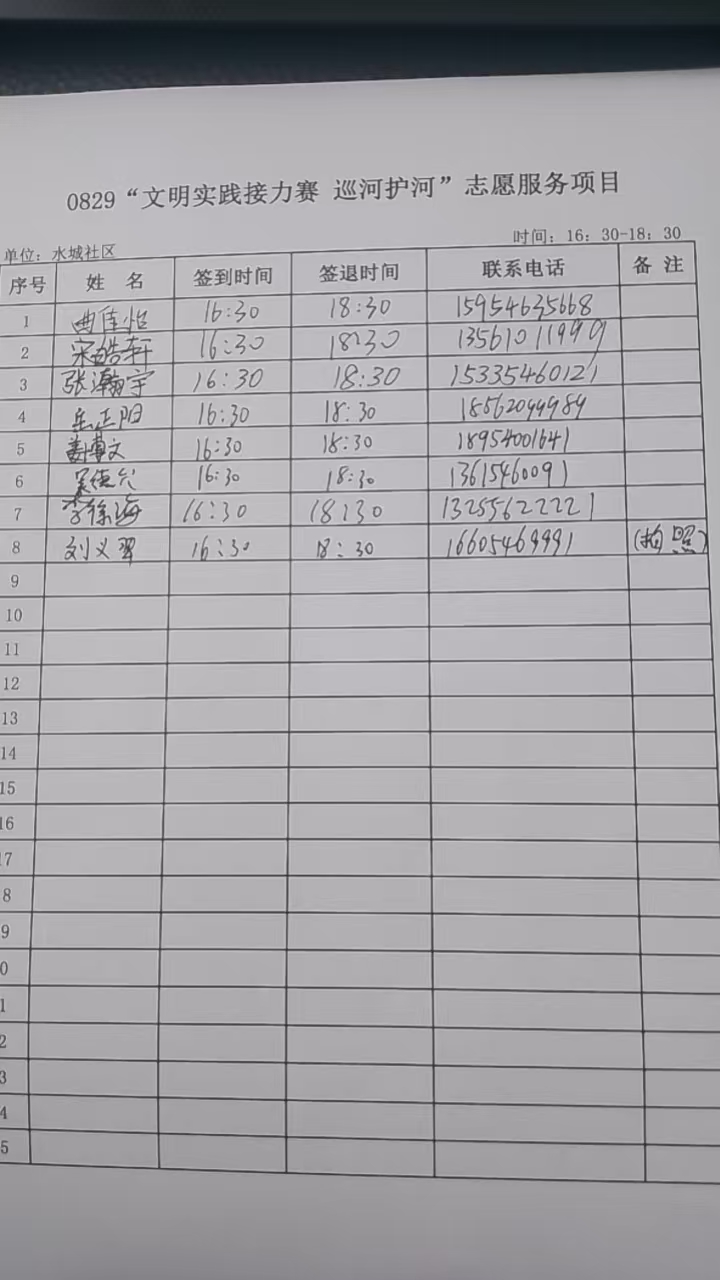 0829“文明实践接力赛 巡河护河”志愿服务项目
单位：水城社区 时间：16：30-18：30
序号 姓 名 签到时间 签退时间 联系电话 备 注
1 曲佳怡 16:30 18:30 15954635668
2 宋皓轩 16:30 18:30 13561011999
3 张瀚宇 16:30 18:30 15335460121
4 岳正阳 16:30 18:30 18562099989
5 姜博文 16:30 18:30 18954001641
6 16:30 18:30 13615460091
7 李徐海 16:30 18:30 13255622221
8 刘义翠 16:30 18:30 16605469991 (拍照)
9
10
11
12
13
14
15
16
17
8
9
0
1
2
3
4
5